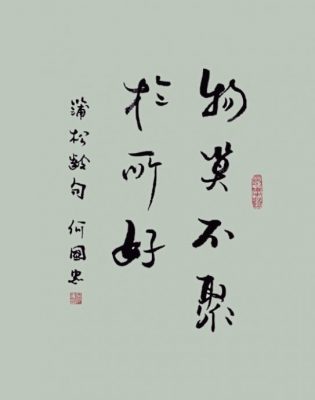 物莫不聚
於所好
蒲松齡句 何國忠